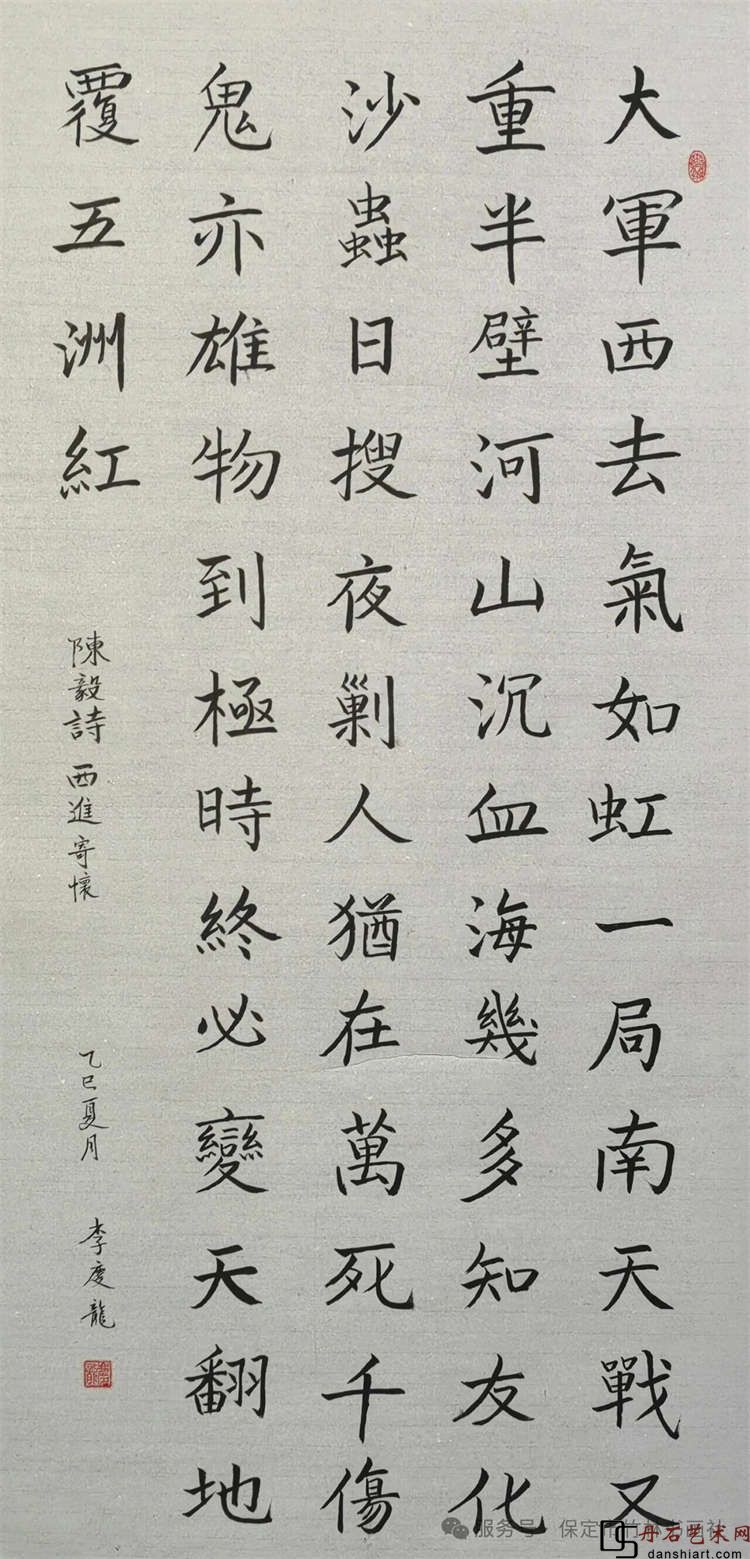 大軍西去氣如虹一局南天戰又
重半壁河山沉血海幾多知友化
沙蟲日搜夜剿人猶在萬死千傷
鬼亦雄物到極時終必變天翻地
覆五洲紅
陳毅詩西進寄懷
乙巳夏月
李慶龍
服务号·保定市竹林书画社
丹石艺术网
danshiart.com